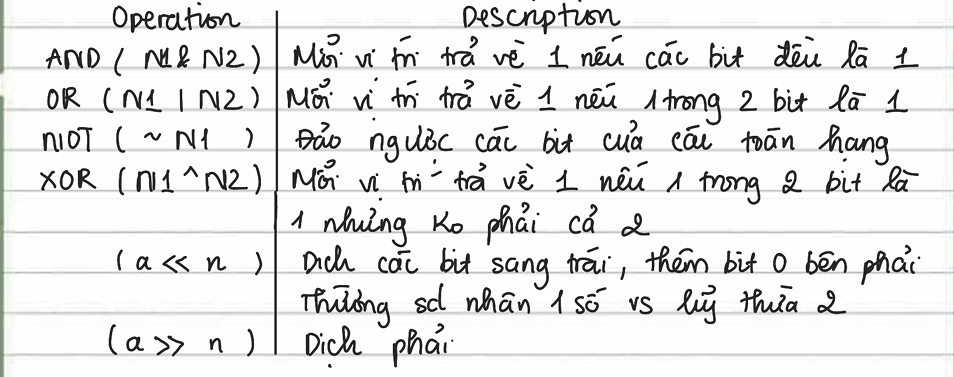 Operation | Description
AND ( N1 & N2 ) | Mỗi vị trí trả về 1 nếu các bit đều là 1
OR ( N1 | N2 ) | Mỗi vị trí trả về 1 nếu 1 trong 2 bit là 1
NOT ( ~ N1 ) | Đảo ngược các bit của các toán hạng
XOR ( N1 ^ N2 ) | Mỗi vị trí trả về 1 nếu 1 trong 2 bit là
1 nhưng ko phải cả 2
( a << n ) | Dịch các bit sang trái, thêm bit 0 bên phải
Thường sd nhân 1 số vs luỹ thừa 2
( a >> n ) | Dịch phải